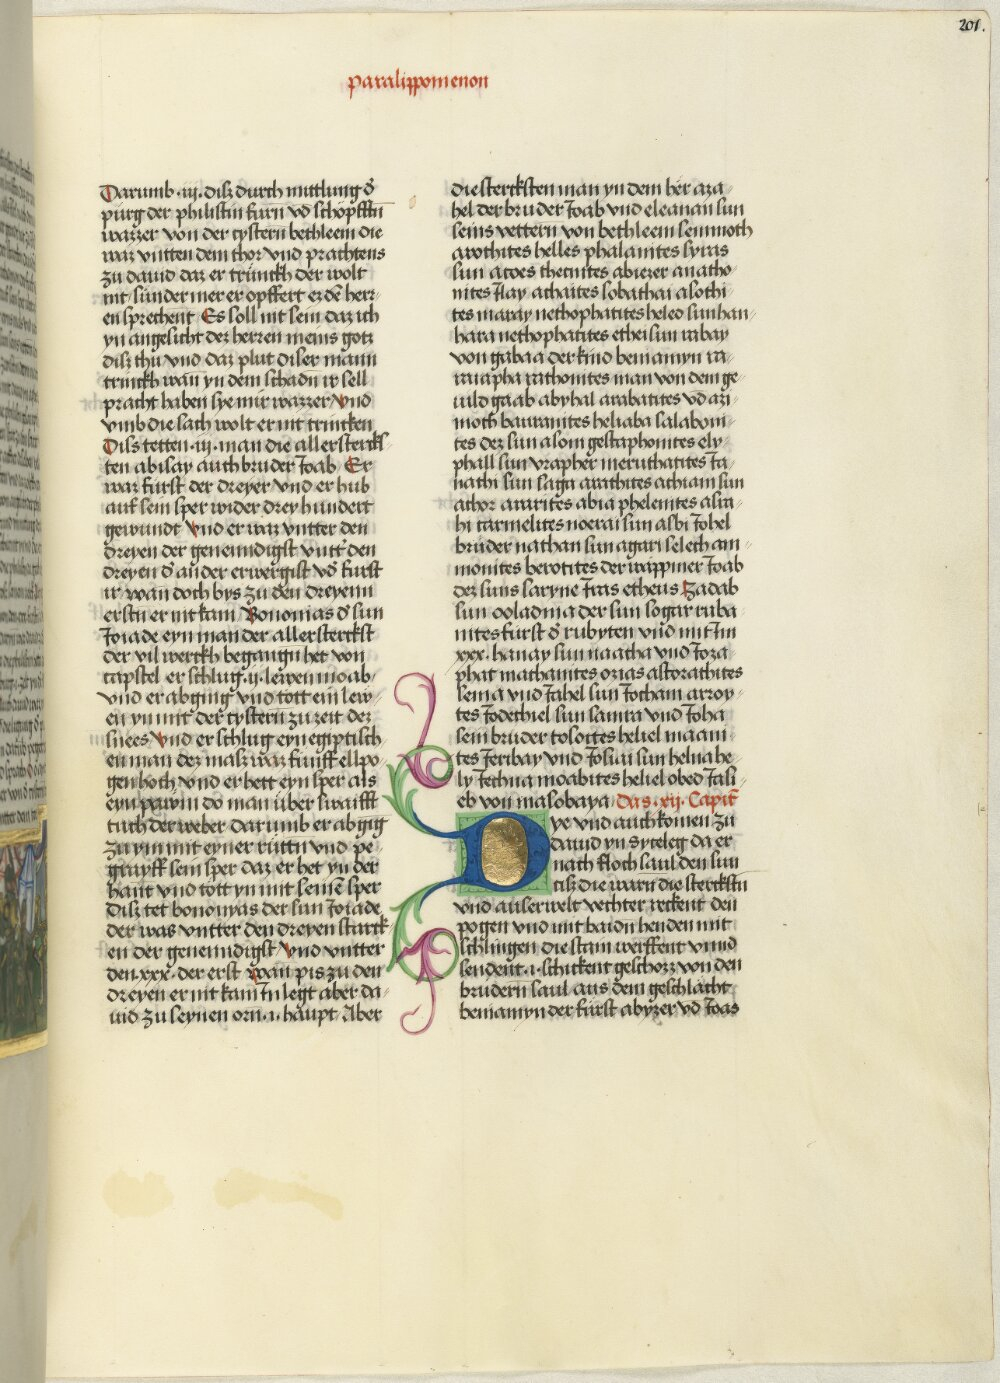 201.
Paralippomenon
Darumb .iij. disz durch mittlung d̕
purg der philistin furn vō schöpfftn
wazzer von der cystern bethleem die
waz vntten dem thor vnd prachtens
zu dauid daz er trunckh der wolt
nit sunder mer er opffert ez dē herr-
en sprechent Es soll nit sein daz ich
yn angesicht dez herren meins gotz
disz thu vnd daz plut diser mann
trinckh wañ yn dem schadn ir sell
pracht haben sye mir wazzer Vnd
vmb die sach wolt er nit trincken
Dis tetten .iij. man die aller stercks-
ten abisay auch bruder Joab Er
waz fürst der dreyer vnd er hub
auf sein sper wider drey hundert
gewundt Vnd er waz vntter den
dreyen der genenndigst vntt̕ den
dreyen d̕ ander erwergist vō furst
ir wan doch bys zu den dreyenn
erstn er nit kam Bonomias d̕ sun
Joiade eyn man der aller sterckst
der vil werckh begangn het von
capstel er schlug .ij. lewen moab-
vnd er abging vnd tott ein lew-
en yn mit der cystern zu zeit dez
snees Vnd er schlug eyn egiptisch-
en man dez masz waz funff ellpo-
gen hoch vnd er hett eyn sper als
eyn pawm do man über swaifft
tuch der weber darumb er abgig
zu ym mit eyner ruttn vnd pe-
grayff sein sper daz er het yn der
hant vnd tott yn mit seinē sper
Disz tet bonomyas der sun Joiade
der was vntter den dreyen starck-
en der genenndigst Vnd vntter
den .xxx. der erst Wañ pis zu den
dreyen er nit kam In legt aber da-
uid zu seynen orn .i. haupt Aber
die stercksten man yn dem her aza-
hel der bruder Joab vnd eleanan sun
seins vettern von bethleem semmoth
arothites helles phalanites syras
sun acces thecuites abiezer anatho-
nites Ilay athaites sobathai asothi-
tes maray nethophatites heleo sun han-
hara nethophatites ethei sun rabay
von gabaa der kind beniamyn ra-
raiapha rathonites man von dem ge-
uild gaab abyhal arabatites vō azi-
moth bauramites heliaba salaboni-
tes dez sun asom gestaphonites ely-
phall sun vrapher meruthatites Ja-
nathi sun saga arathites achiam sun
athor ararites abia phelenites asra-
hi carmelites noerai sun asbi Johel
bruder nathan sun agari selech am-
monites berotites der wappiner Joab
dez suns saryne Jras etheus Zadab
sun ooladina der sun sogar ruba-
nites fürst d̕ rubyten vnd mit Im
xxx. hanay sun naatha vnd Joza
phat mathanites ozias astorathites
sema vnd Jahel sun Jotham arroy-
tes Jodethiel sun samra vnd Joha
sein bruder tosoites heliel maani-
tes Jeribay vnd Josuai sun helnahe-
ly Jethna moabites heliel obed Jasi-
eb von masobaya Das .xij. Capit̕
Dye vnd auch komen zu
dauid yn syteleg da er
nach floch saul den sun
cisz die warn die sterckstn
vnd auserwelt vechter reckent den
pogen vnd mit baidn henden mit
schlingen die stain werffent vnnd
sendent .i. schickent geschozz von den
brudern saul aus dem geschlächt
beniamyn der fürst abyzer vō Joas